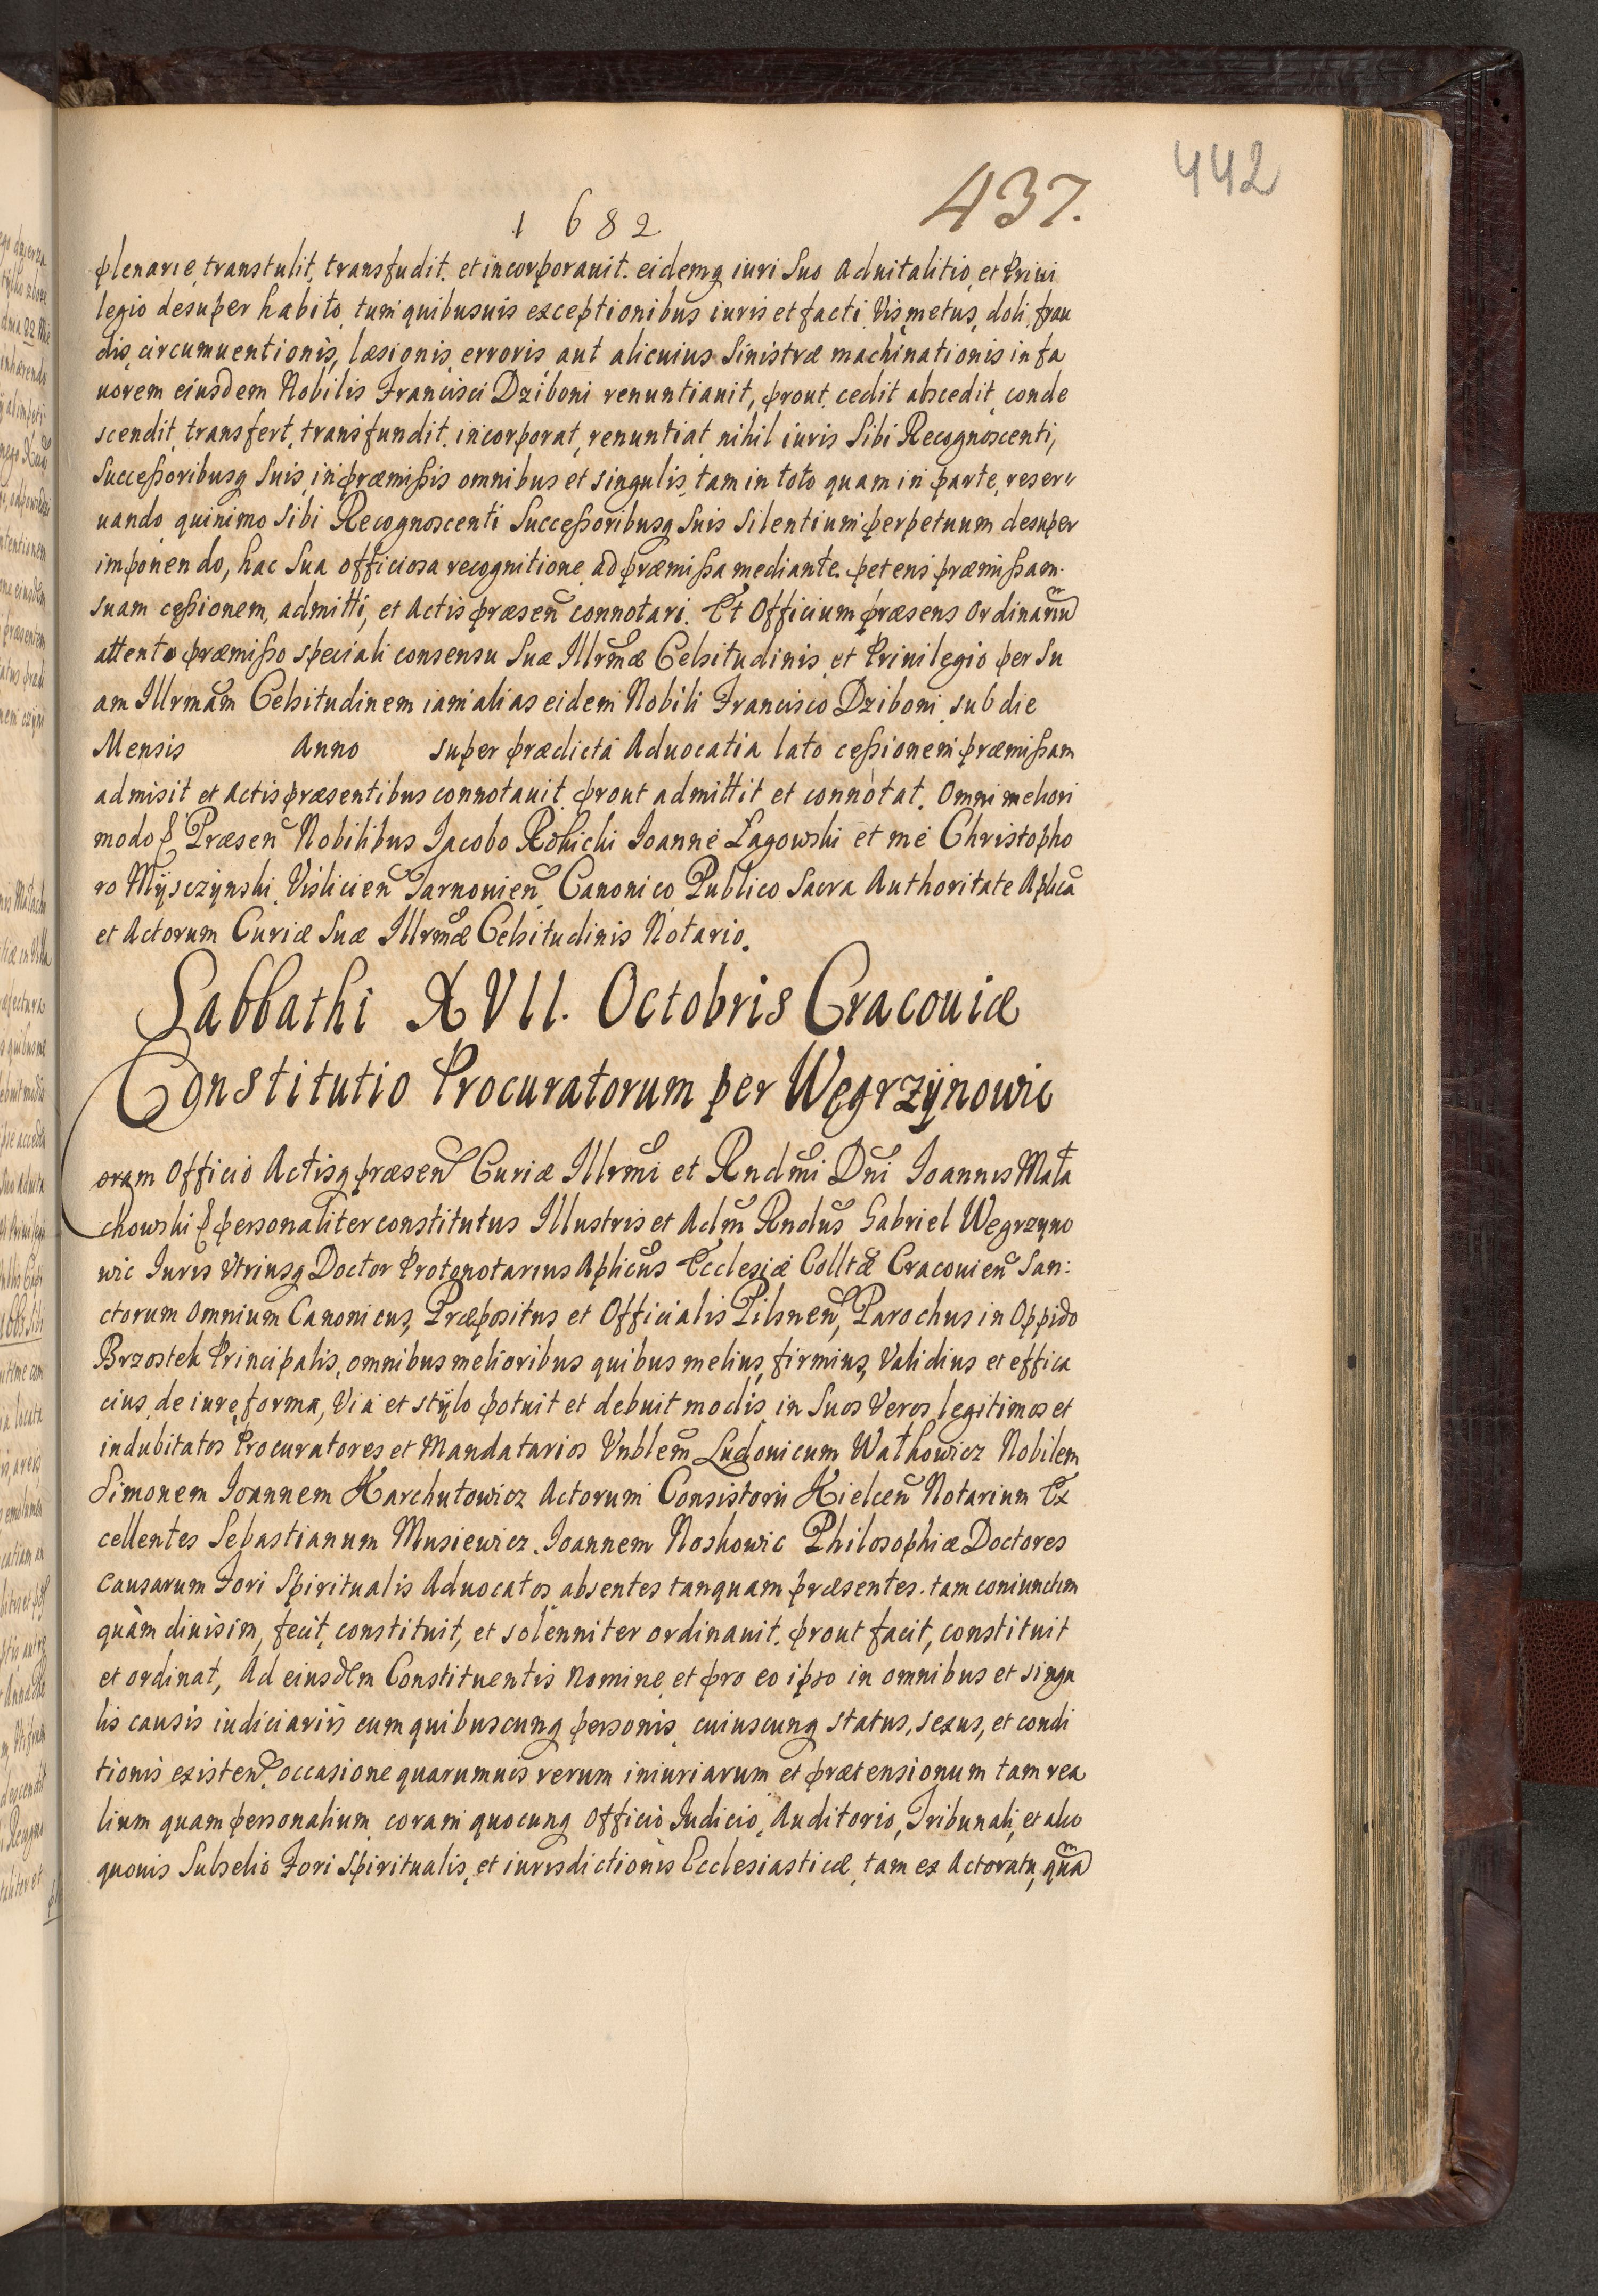 442
437.
1682
plenarie, transtulit, transfudit, et incorporauit. eidemq iuri Suo Aduitalitio, et Priui
legio desuper habito, tum quibusuis exceptionibus iuris et facti, Vis, metus, doli, frau
dis, circumuentionis, læsionis, erroris, aut alicuius Sinistræ machinationis in fa
uorem eiusdem Nobilis Francisci Dziboni renuntiauit, prout cedit abscedit, conde
scendit, transfert, transfundit, incorporat, renuntiat nihil iuris Sibi Recognoscenti,
Successoribusq Suis, in præmissis omnibus et singulis, tam in toto quam in parte, reser
uando, quinimo Sibi Recognoscenti Successoribusq Suis Silentium perpetuum desuper
imponendo, hac Sua officiosa recognitione ad præmissa mediante. petens præmissam
suam cessionem, admitti, et Actis præsen connotari. Et Officium præsens Ordinariu͞m
attento præmisso speciali consensu Suæ Illrmæ Celsitudinis, et Priuilegio per Su
am Illrmam Celsitudinem iam alias eidem Nobili Francisco Dziboni, sub die
Mensis Anno super prædicta Aduocatia lato cessionem præmissam
admisit et Actis præsentibus connotauit, prout admittit et connotat. Omni meliori
modo & Præsen Nobilibus Jacobo Rokicki Joanne Łagowski et me Christopho
ro Mÿsczÿnski, Vislicien Tarnouien Canonico, Publico Sacra Authoritate Aplica
et Actorum Curiæ Suæ Illrmæ Celsitudinis Notario.
Sabbathi XVII. Octobris Cracouiæ
Constitutio Procuratorum per Węgrzÿnowic
Coram Officio Actisq præsen Curiæ Illrmi et Rndmi Dni Joannis Mała
chowski & personaliter constitutus Illustris et Adm Rndus Gabriel Wegrzyno
wic Juris Vtriusq Doctor Protonotarius Aplicus Ecclesiæ Colltæ Cracouien San:
ctorum Omnium Canonicus, Præpositus et Officialis Pilsnen, Parochus in Oppido
Brzostek Principalis, omnibus melioribus quibus melius, firmius, Validius et effica
cius, de iure, forma, Via et stÿlo potuit et debuit modis, in Suos Veros, legitimos et
indubitatos Procuratores et Mandatarios Vnblem Ludouicum Wałkowicz Nobilem
Simonem Joannem Karchutowicz Actorum Consistorii Kielcen Notarium Ex
cellentes Sebastianum Musiewicz, Joannem Noskowic Philosophiæ Doctores
Causarum Fori Spiritualis Aduocatos, absentes tanquam præsentes. tam coniunctim
quàm diuisim, fecit, constituit, et solenniter ordinauit. prout facit, constituit
et ordinat, Ad eiusdem Constituentis Nomine, et pro eo ipso in omnibus et singu
lis causis iudiciariis cum quibuscunq personis, cuiuscunq status, sexus, et condi
tionis existen, occasione quarumuis rerum iniuriarum et prætensionum tam rea
lium quam personalium, coram quocunq Officio Judicio, Auditorio, Tribunali, et alio
quouis Subselio Fori Spiritualis, et iurisdictionis Ecclesiasticæ, tam ex Actoratu, qua͞m